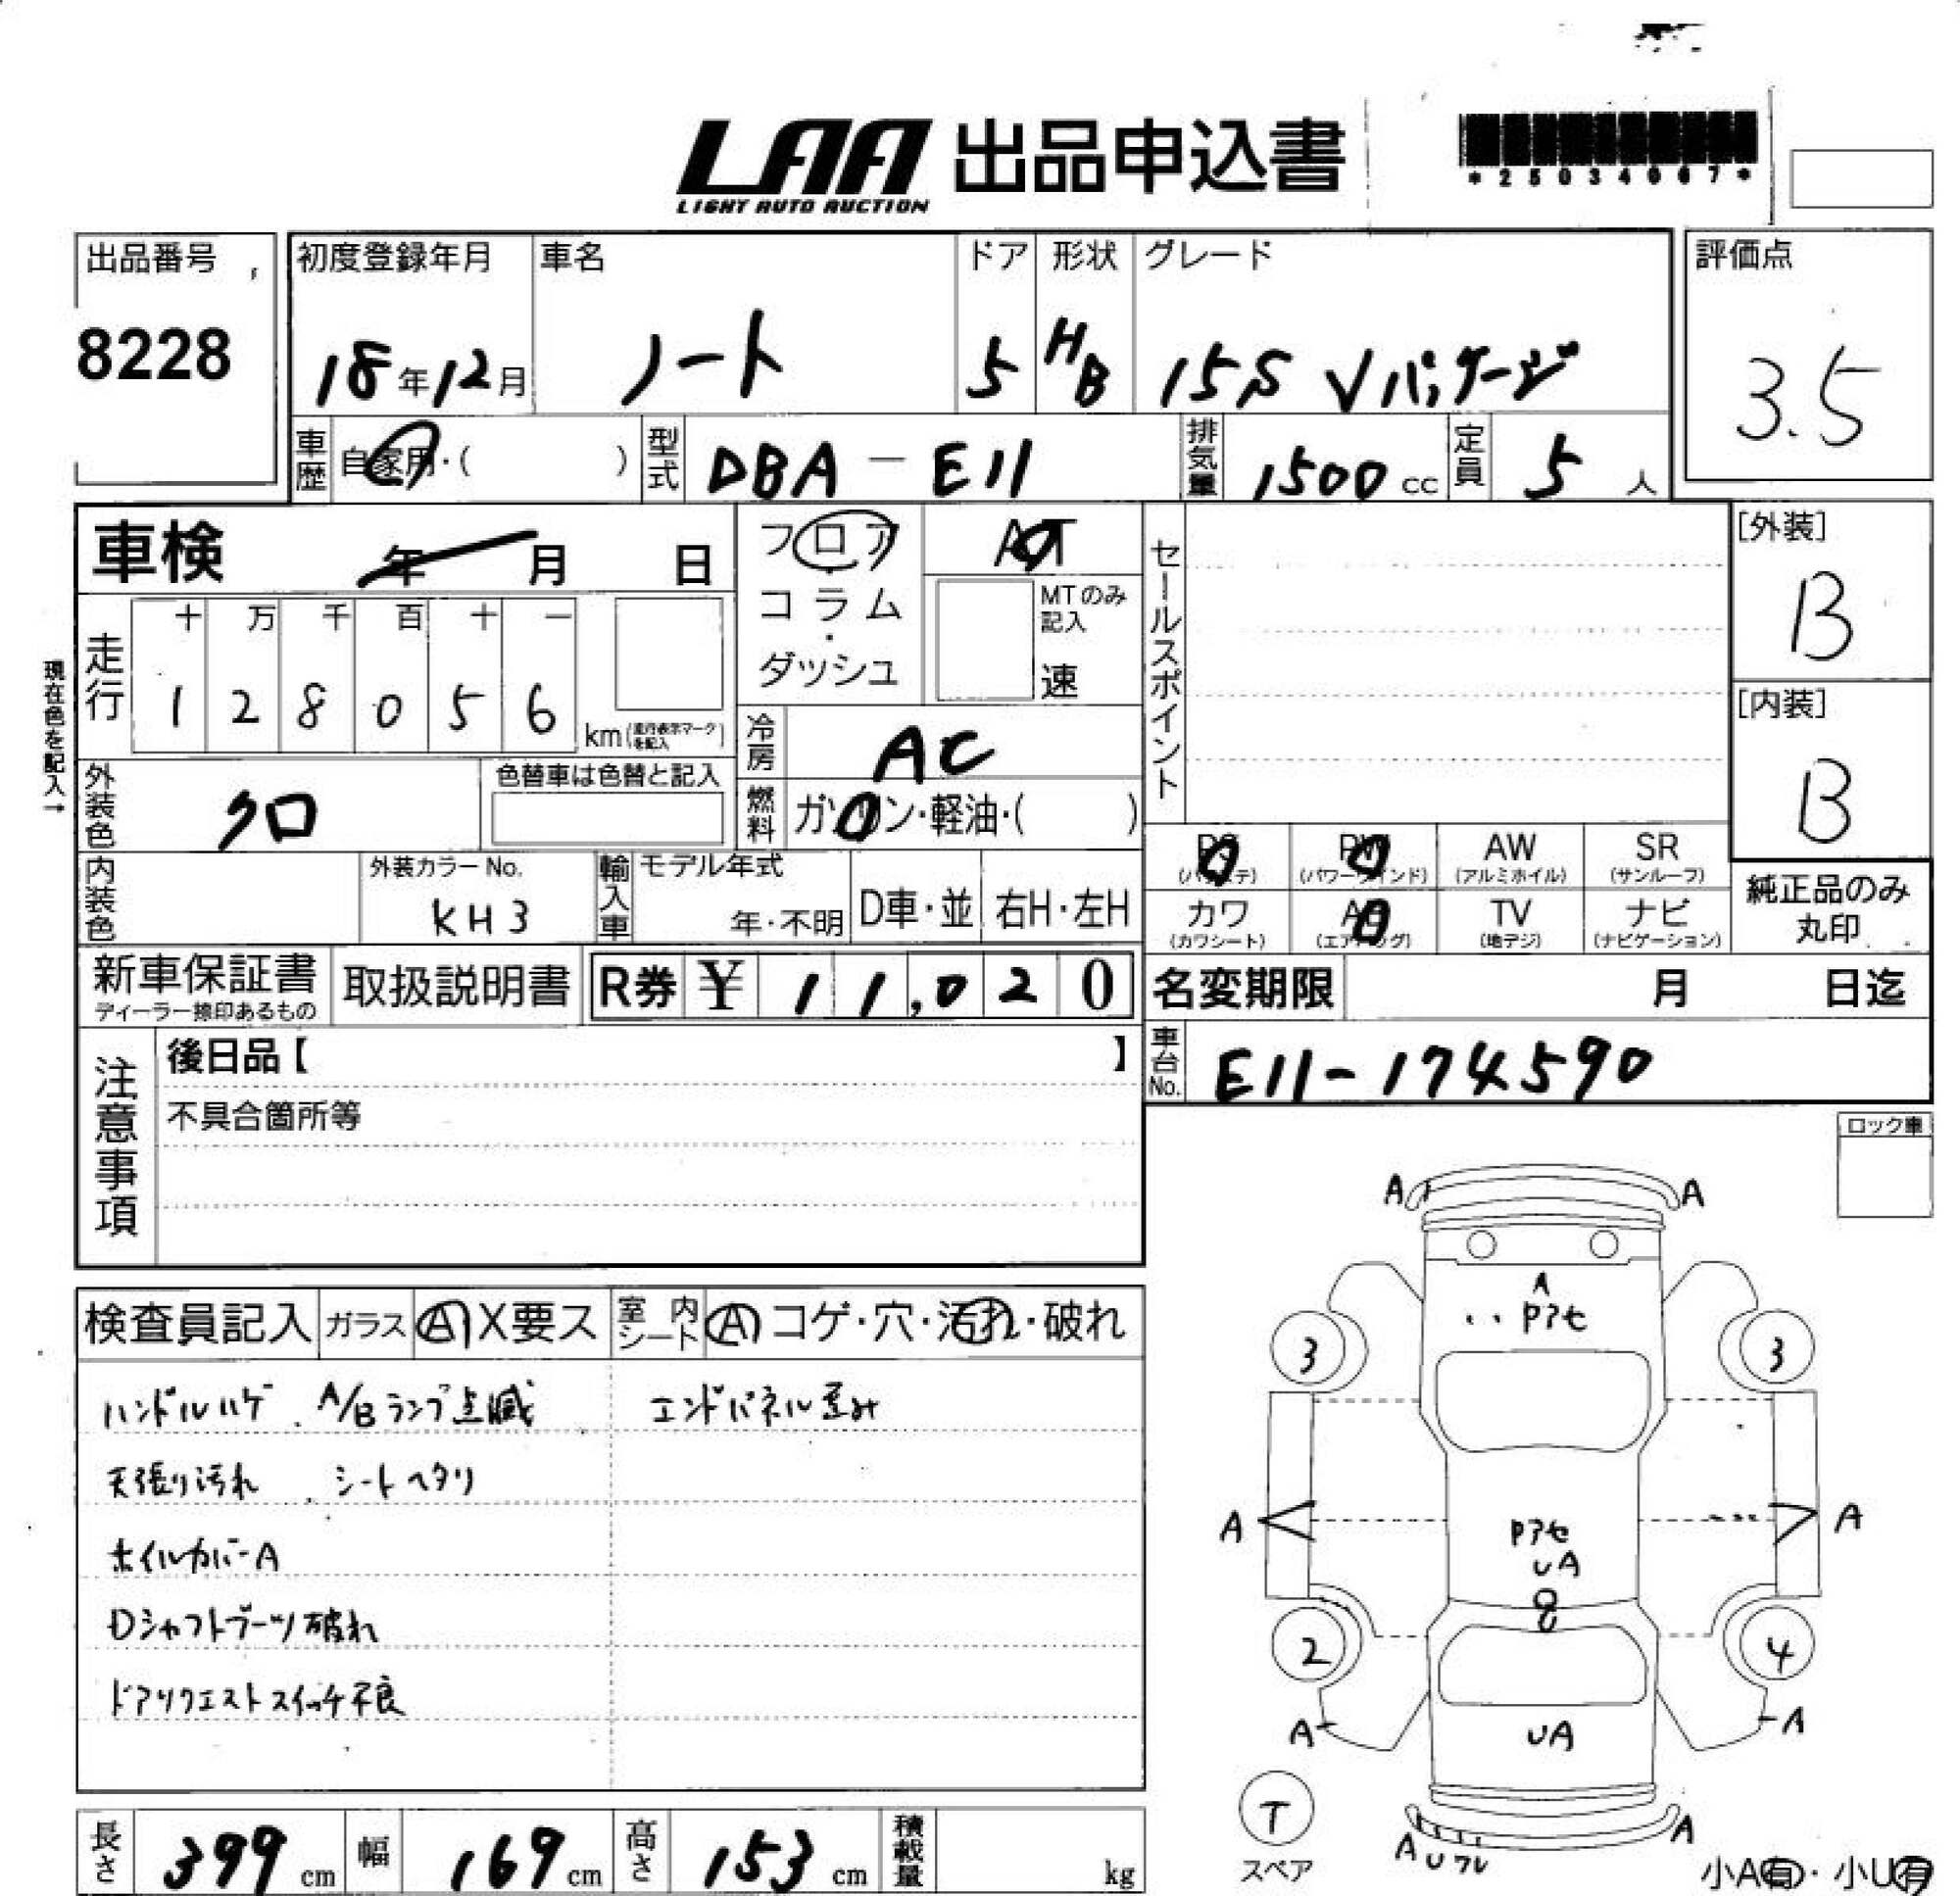 LAA 出品申込書
LIGHT AUTO AUCTION
*25034067*
出品番号
8228
初度登録年月
18年12月
車名
ノート
ドア
5
形状
HB
グレード
15S Vパッケージ
評価点
3.5
車歴
自家用・( )
型式
DBA-E11
排気量
1500 cc
定員
5 人
車検 年 月 日
フロア・コラム・ダッシュ
AT
MTのみ記入
速
セールスポイント
[外装]
B
[内装]
B
現在色を記入→
走行
十 万 千 百 十 一
1 2 8 0 5 6
km(走行表示マークを記入)
冷房
AC
燃料
ガソリン・軽油・( )
外装色
クロ
色替車は色替と記入
内装色
外装カラーNo.
KH3
輸入車
モデル年式
年・不明
D車・並
右H・左H
PS (パワステ)
PW (パワーウインド)
AW (アルミホイル)
SR (サンルーフ)
カワ (カワシート)
AB (エアバッグ)
TV (地デジ)
ナビ (ナビゲーション)
純正品のみ丸印
新車保証書
ディーラー捺印あるもの
取扱説明書
R券 ¥ 11,020
名変期限 月 日迄
車台No.
E11-174590
注意事項
後日品【 】
不具合箇所等
ロック車
検査員記入
ガラス
A X要ス
室内シート
A コゲ・穴・汚れ・破れ
ハンドルハゲ、A/Bランプ点滅
エンドパネル歪み
天張り汚れ、シートヘタリ
ホイルカバーA
Dシャフトブーツ破れ
ドアリクエストスイッチ不良
A A
A
Pアセ
3 3
A A
Pアセ
UA
2 4
A A
UA
T
スペア
A
A U ワレ
小A有・小U有
長さ
399 cm
幅
169 cm
高さ
153 cm
積載量
kg